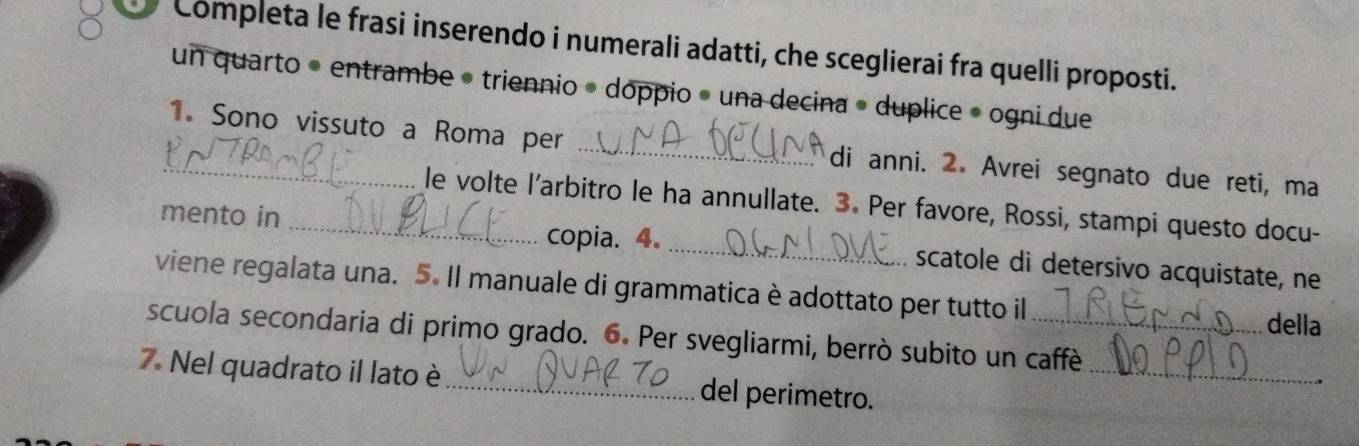 Completa le frasi inserendo i numerali adatti, che sceglierai fra quelli proposti.
un quarto • entrambe • triennio • doppio • una decina • duplice • ogni due
1. Sono vissuto a Roma per UNA DECINA di anni. 2. Avrei segnato due reti, ma
ENTRAMBE le volte l'arbitro le ha annullate. 3. Per favore, Rossi, stampi questo docu-
mento in DUPLICE copia. 4. OGNI DUE scatole di detersivo acquistate, ne
viene regalata una. 5. Il manuale di grammatica è adottato per tutto il TRIENNO della
scuola secondaria di primo grado. 6. Per svegliarmi, berrò subito un caffè DOPPIO.
7. Nel quadrato il lato è UN QUARTO del perimetro.